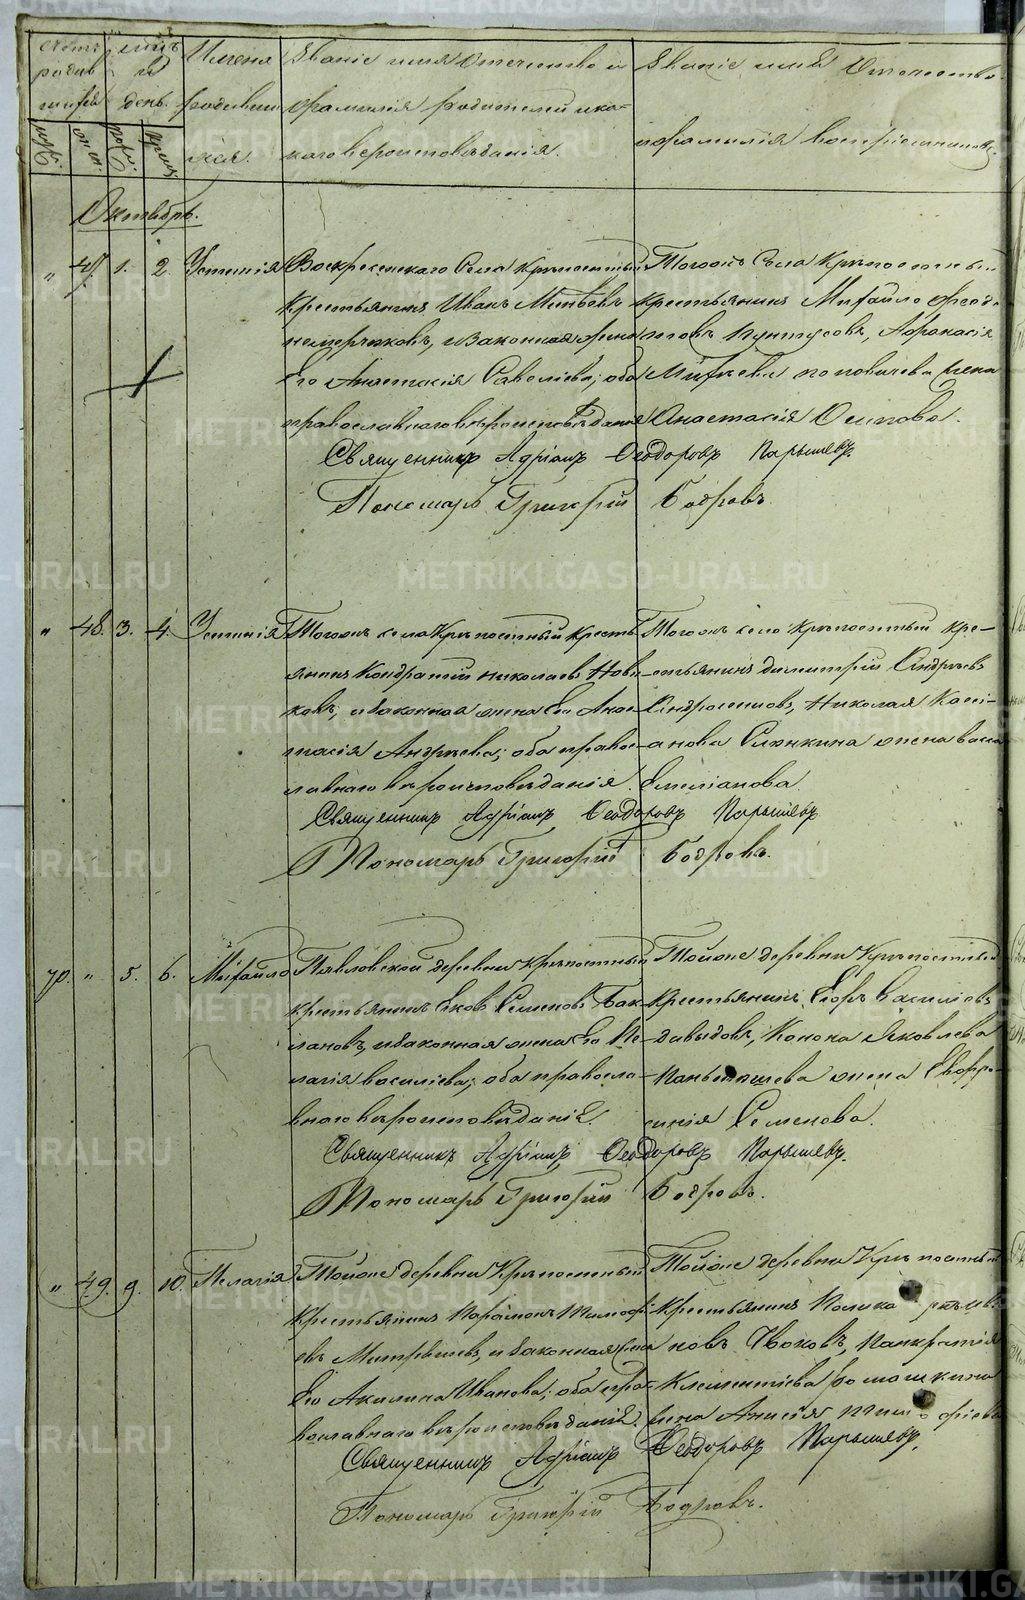 Счетъ родившихся
Мѣсяцъ и день.
Имена родившихся.
Званіе имя Отечество и
фамилія родителей и ка-
каго вѣроисповѣданія.
Званіе имя Отечество
и фамилія воспріемниковъ.
муж.
жен.
рожд.
крещ.
Октябрь.
„ 47. 1. 2. Устинія
Воскресенскаго Села Крѣпостный
крестьянинъ Иванъ
и законная жена
Его Анастасія Савеліева; оба
православнаго вѣроисповѣданія
Тогожъ Села Крѣпостный
крестьянинъ Михайло Ѳеодо-
товъ Аѳанасія
жена
Анастасія Осипова.
Священникъ Адріанъ Ѳеодоровъ Парышевъ.
Пономарь Григорій Бобровъ.
„ 48. 3. 4. Устинія
Тогожъ села Крѣпостный кресть-
янинъ Кондратій Николаевъ Нови-
ковъ, и законная жена Его Анас-
тасія Андрѣева; оба правос-
лавнаго вѣроисповѣданія.
Тогожъ села крѣпостный кре-
стьянинъ Димитрій Андрѣевъ
Николая Касі-
анова жена Васса
Емеліанова.
Священникъ Адріанъ Ѳеодоровъ Парышевъ
Пономарь Григорій Бобровъ.
70. „ 5. 6. Михайло
Павловской деревни крѣпостный
крестьянинъ Яковъ Семеновъ Бак-
лановъ, и законная жена Его Пе-
лагія Василіева; оба правосла-
внаго вѣроисповѣданія.
Тойже деревни Крѣпостный
Крестьянинъ Егоръ Василіевъ
Давыдовъ, Конона Яковлева
жена Евфро-
синія Семенова.
Священникъ Адріанъ Ѳеодоровъ Парышевъ.
Пономарь Григорій Бобровъ.
„ 49. 9. 10. Пелагія
Тойже деревни Крѣпостный
Крестьянинъ Парамонъ Тимофе-
евъ и законная жена
Его Акилина Иванова; оба пра-
вославнаго вѣроисповѣданія.
Тойже деревни Крѣпостный
Крестьянинъ
Панкратія
Клементіева
жена Анисія
Священникъ Адріанъ Ѳеодоровъ Парышевъ.
Пономарь Григорій Бобровъ.
METRIKI.GASO-URAL.RU